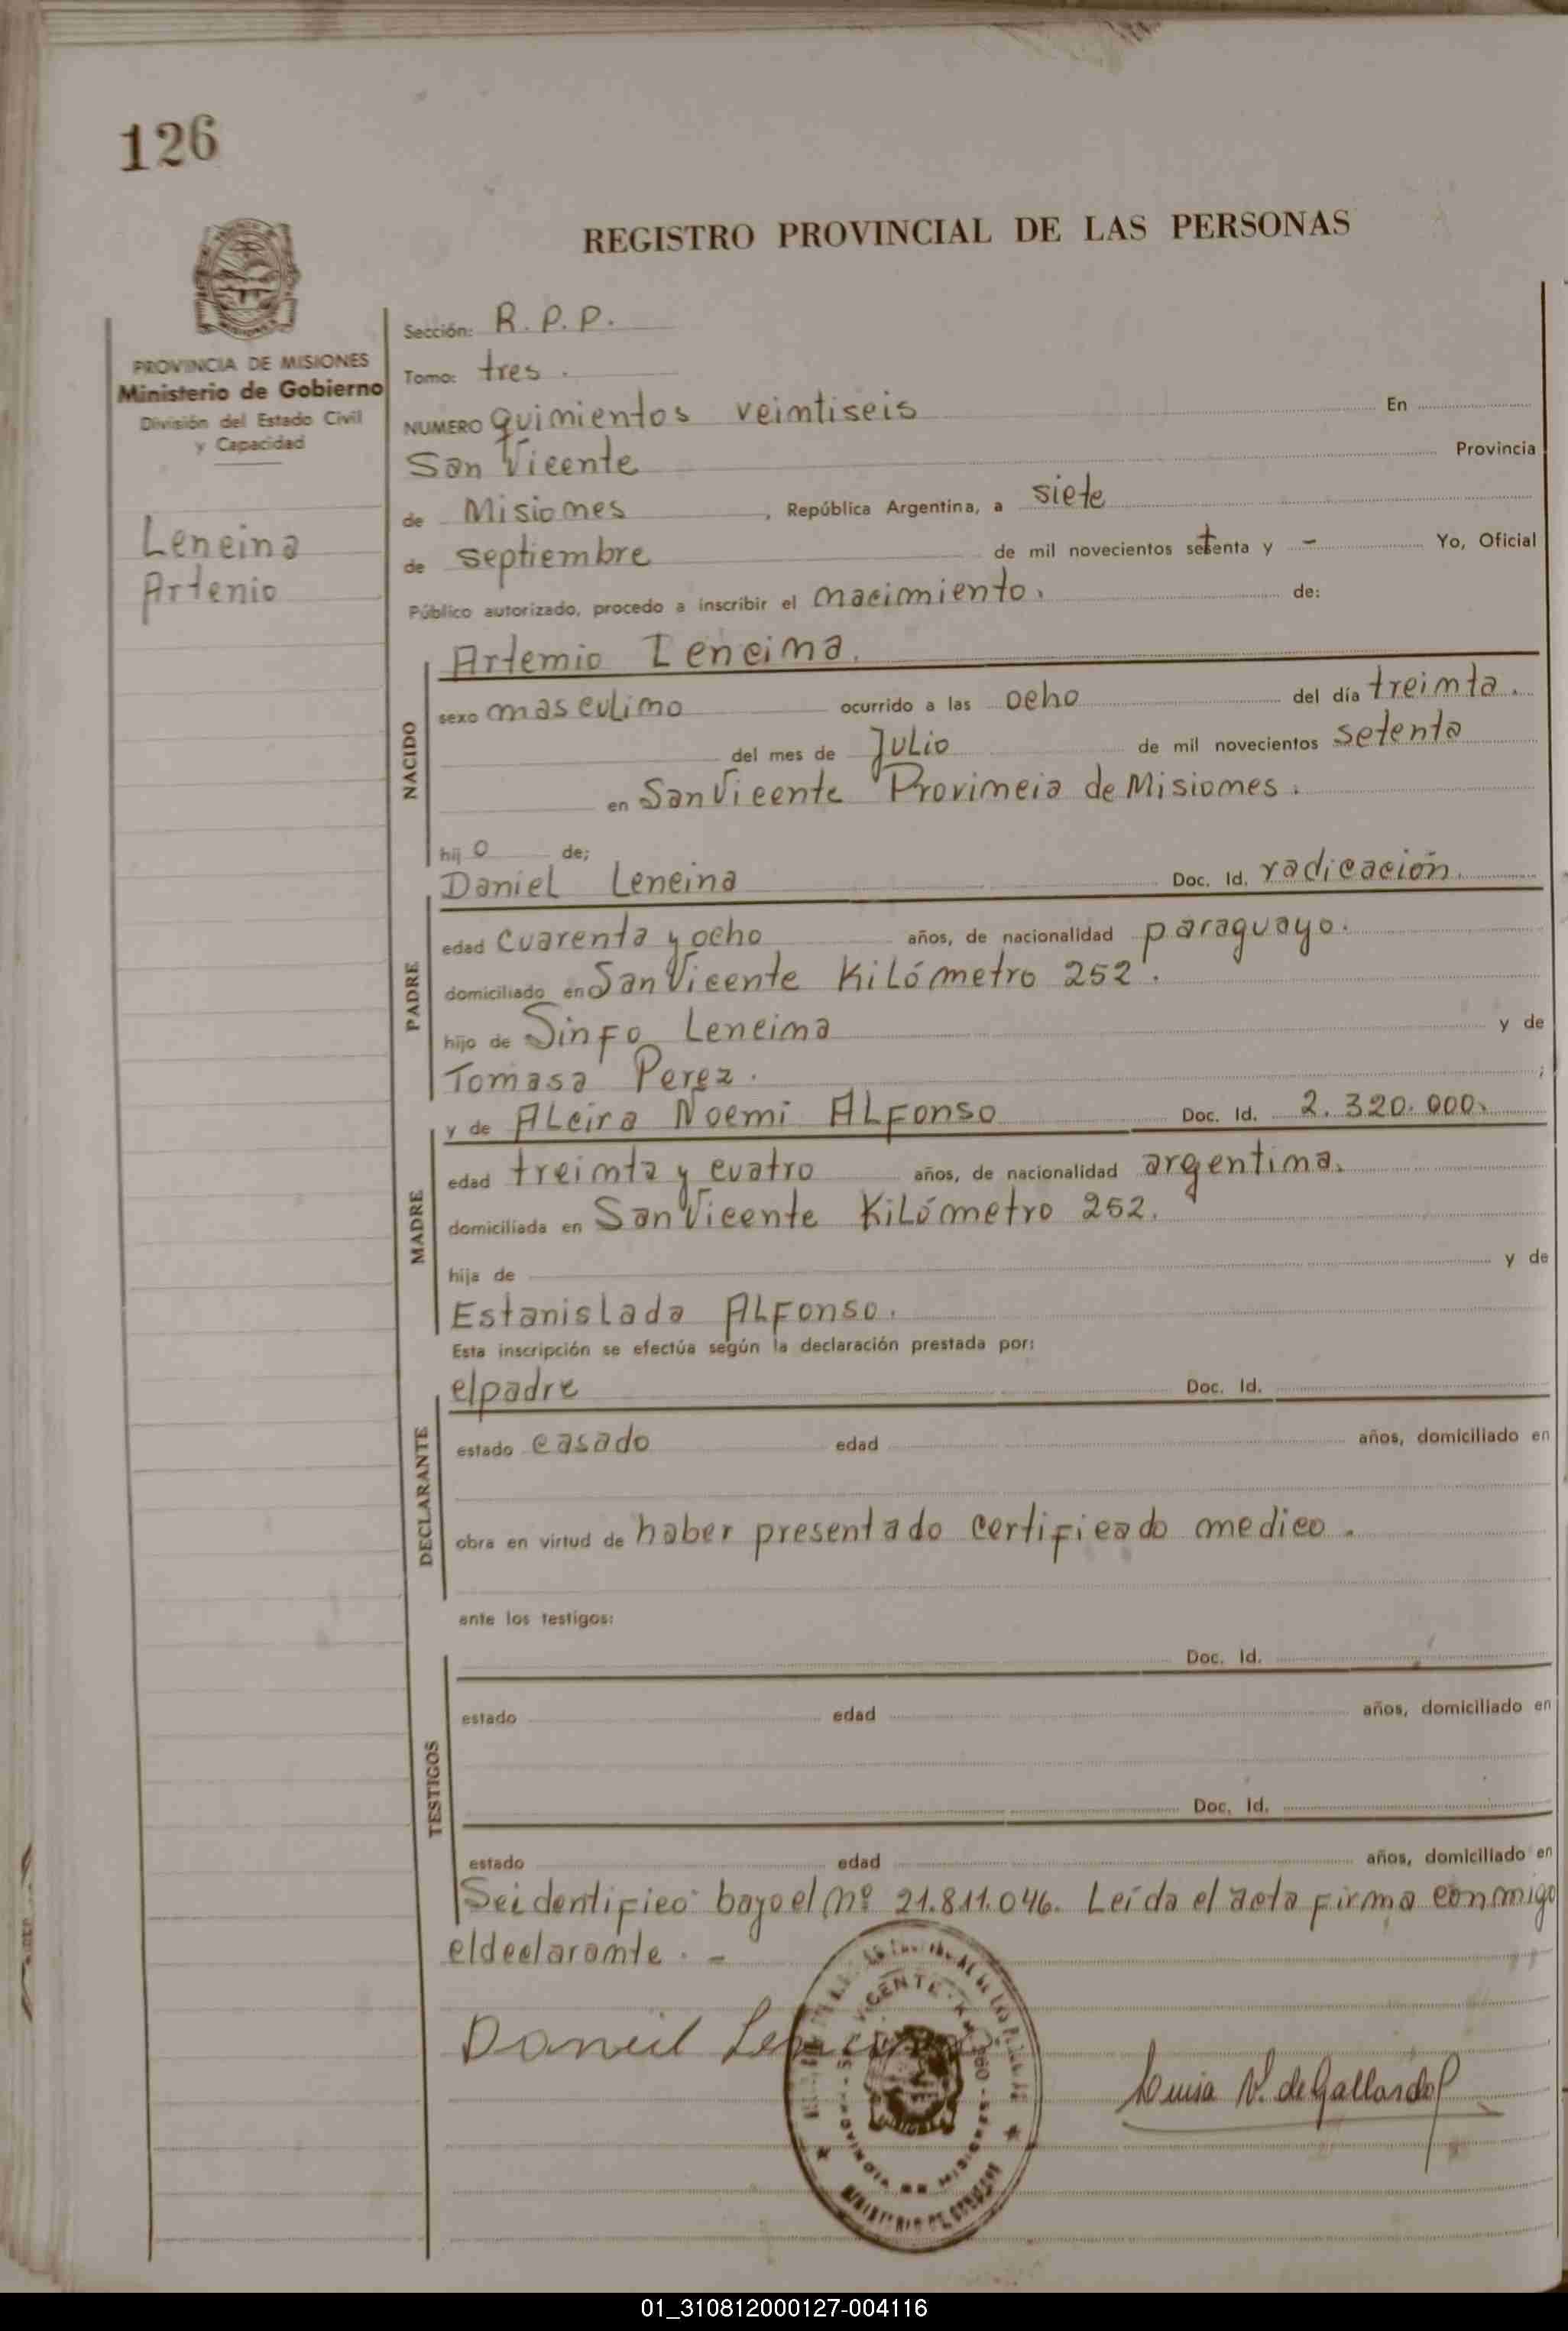 126
REGISTRO PROVINCIAL DE LAS PERSONAS
PROVINCIA DE MISIONES
Ministerio de Gobierno
División del Estado Civil
y Capacidad
Lencina
Artenio
Sección: R. P. P.
Tomo: tres.
NUMERO quinientos veintiseis En
San Vicente Provincia
de Misiones, República Argentina, a siete
de septiembre de mil novecientos setenta y - Yo, Oficial
Público autorizado, procedo a inscribir el nacimiento. de:
Artemio Lencina.
NACIDO
sexo masculino ocurrido a las ocho del día treinta.
del mes de Julio de mil novecientos setenta
en San Vicente Provincia de Misiones.
hijo de;
Daniel Lencina Doc. Id. radicación.
PADRE
edad cuarenta y ocho años, de nacionalidad paraguayo.
domiciliado en San Vicente Kilómetro 252.
hijo de Sinfo Lencina y de
Tomasa Perez. ;
y de Alcira Noemi Alfonso Doc. Id. 2.320.000.
MADRE
edad treinta y cuatro años, de nacionalidad argentina.
domiciliada en San Vicente Kilómetro 252.
hija de y de
Estanislada Alfonso.
Esta inscripción se efectúa según la declaración prestada por:
el padre Doc. Id.
DECLARANTE
estado casado edad años, domiciliado en
obra en virtud de haber presentado certificado medico.
ante los testigos:
Doc. Id.
TESTIGOS
estado edad años, domiciliado en
Doc. Id.
estado edad años, domiciliado en
Se identifico bajo el nº 21.811.046. Leída el acta firma conmigo
el declarante. -
Daniel Lencina
Luisa V. de Gallardo
VICENTE
PROVINCIA DE MISIONES
MINISTERIO DE GOBIERNO
01_310812000127-004116